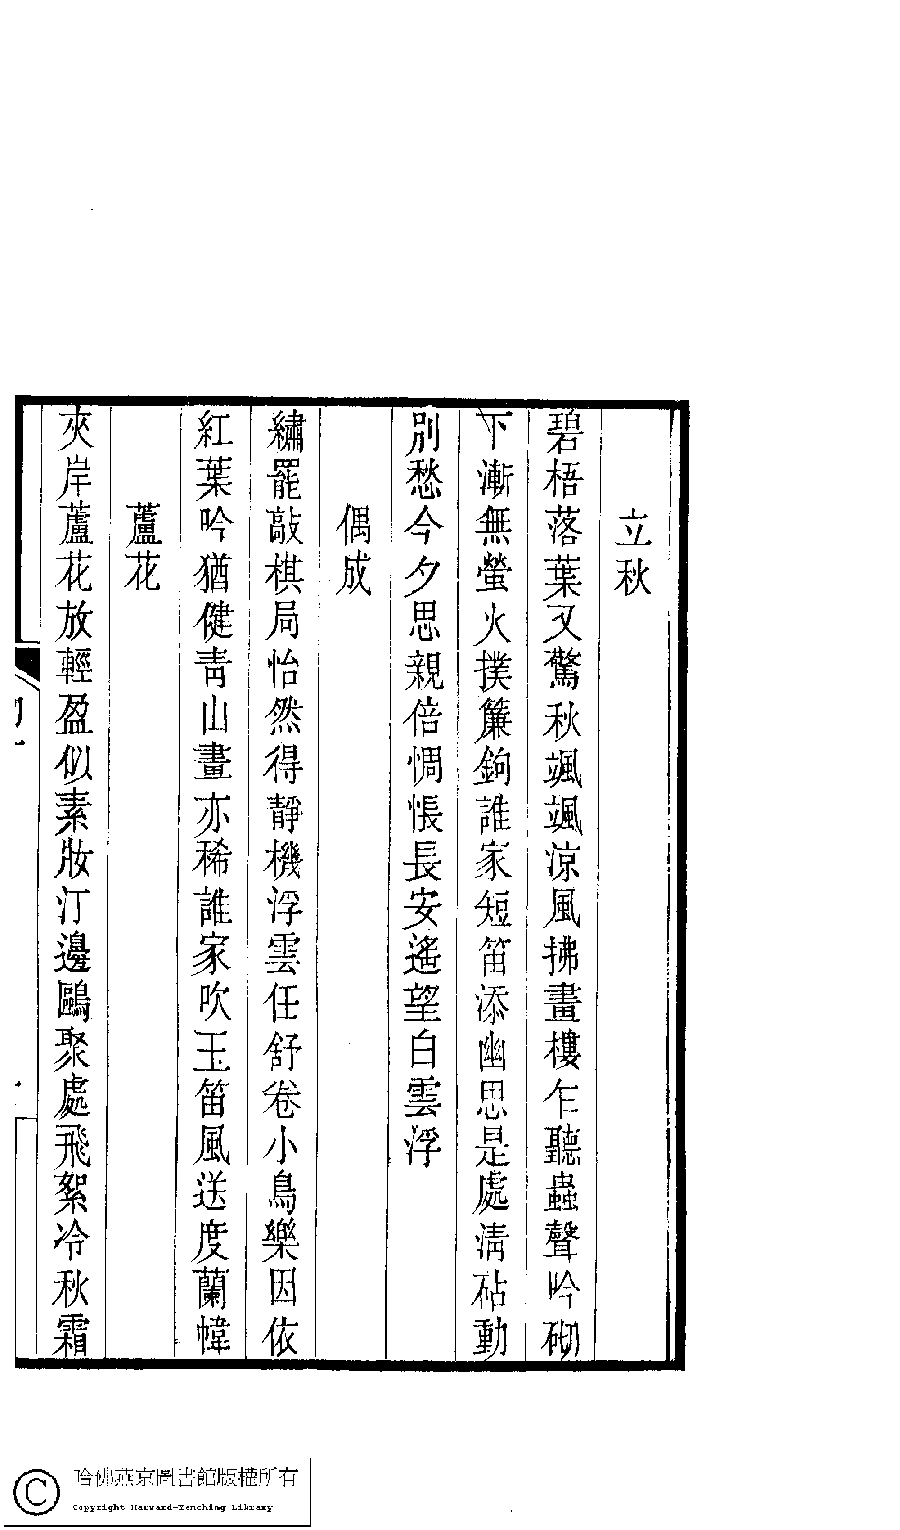 立秋
碧梧落葉又驚秋颯颯涼風拂畫樓乍聽蟲聲吟砌
下漸無螢火撲簾鉤誰家短笛添幽思是處淸砧動
別愁今夕思親倍惆悵長安遙望白雲浮
偶成
繡罷敲棋局怡然得靜機浮雲任舒卷小鳥樂因依
紅葉吟猶健靑山畫亦稀誰家吹玉笛風送度蘭幃
蘆花
夾岸蘆花放輕盈似素妝汀邊鷗聚處飛絮冷秋霜
哈佛燕京圖書館版權所有
Copyright Harvard-Yenching Library